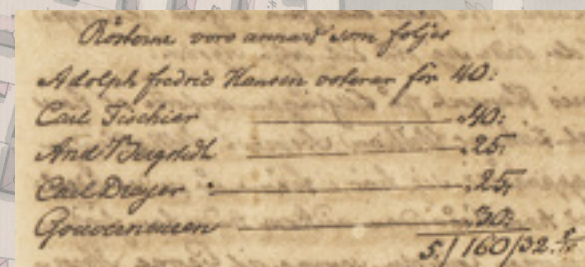 Rösterne voro annars som foljer
Adolph fredric Hansen voterar för 40:
Carl Tischier 40:
And Bergstedt 25
Carl Dreyer 25
Gouverneuren 30:
5./160/32.